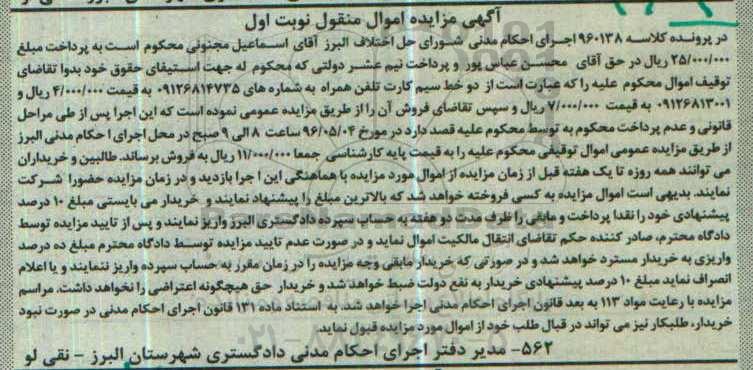 آگهی مزایده اموال منقول نوبت اول
در پرونده کلاسه ۹۶۰۱۳۸ اجرای احکام مدنی شورای حل اختلاف البرز آقای اسماعیل مجنونی محکوم است به پرداخت مبلغ
۲۵/۰۰۰/۰۰۰ ریال در حق آقای محسن عباس پور و پرداخت نیم عشر دولتی که محکوم له جهت استیفای حقوق خود بدوا تقاضای
توقیف اموال محکوم علیه را که عبارت است از دو خط سیم کارت تلفن همراه به شماره های ۰۹۱۲۶۸۱۴۷۳۵ به قیمت ۴/۰۰۰/۰۰۰ ریال و
۰۹۱۲۶۸۱۳۰۰۱ به قیمت ۷/۰۰۰/۰۰۰ ریال و سپس تقاضای فروش آن را از طریق مزایده عمومی نموده است که این اجرا پس از طی مراحل
قانونی و عدم پرداخت محکوم به توسط محکوم علیه قصد دارد در مورخ ۹۶/۰۵/۰۴ ساعت ۸ الی ۹ صبح در محل اجرای احکام مدنی البرز
از طریق مزایده عمومی اموال توقیفی محکوم علیه را به قیمت پایه کارشناسی جمعا ۱۱/۰۰۰/۰۰۰ ریال به فروش برساند. طالبین و خریداران
می توانند همه روزه تا یک هفته قبل از زمان مزایده از اموال مورد مزایده با هماهنگی این اجرا بازدید و در زمان مزایده حضورا شرکت
نمایند. بدیهی است اموال مزایده به کسی فروخته خواهد شد که بالاترین مبلغ را پیشنهاد نمایند و خریدار می بایستی مبلغ ۱۰ درصد
پیشنهادی خود را نقدا پرداخت و مابقی را ظرف مدت دو هفته به حساب سپرده دادگستری البرز واریز نمایند و پس از تایید مزایده توسط
دادگاه محترم، صادر کننده حکم تقاضای انتقال مالکیت اموال نماید و در صورت عدم تایید مزایده توسط دادگاه محترم مبلغ ده درصد
واریزی به خریدار مسترد خواهد شد و در صورتی که خریدار مابقی وجه مزایده را در زمان مقرر به حساب سپرده واریز ننمایند و یا اعلام
انصراف نماید مبلغ ۱۰ درصد پیشنهادی خریدار به نفع دولت ضبط خواهد شد و خریدار حق هیچگونه اعتراضی را نخواهد داشت. مراسم
مزایده با رعایت مواد ۱۱۳ به بعد قانون اجرای احکام مدنی اجرا خواهد شد. به استناد ماده ۱۳۱ قانون اجرای احکام مدنی در صورت نبود
خریدار، طلبکار نیز می تواند در قبال طلب خود از اموال مورد مزایده قبول نماید.
۵۶۲- مدیر دفتر اجرای احکام مدنی دادگستری شهرستان البرز - نقی لو